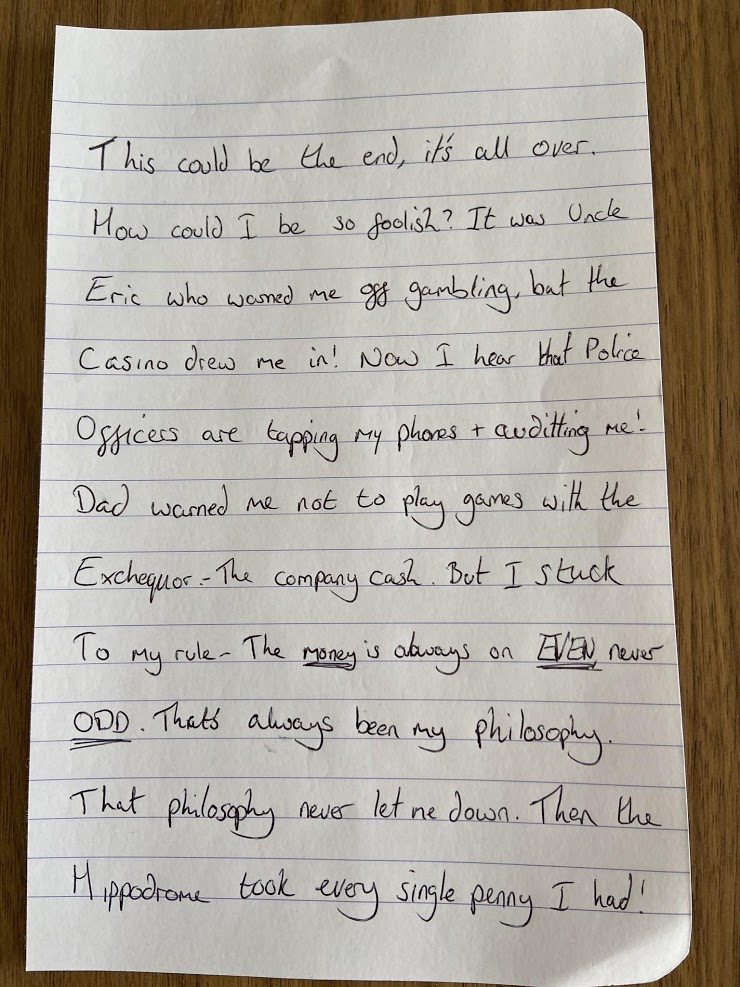 This could be the end, it's all over.
How could I be so foolish? It was Uncle
Eric who warned me off gambling, but the
Casino drew me in! Now I hear that Police
Officers are tapping my phones + auditting me!
Dad warned me not to play games with the
Exchequor - The company cash. But I stuck
To my rule - The money is always on EVEN never
ODD. That's always been my philosophy.
That philosophy never let me down. Then the
Hippodrome took every single penny I had!